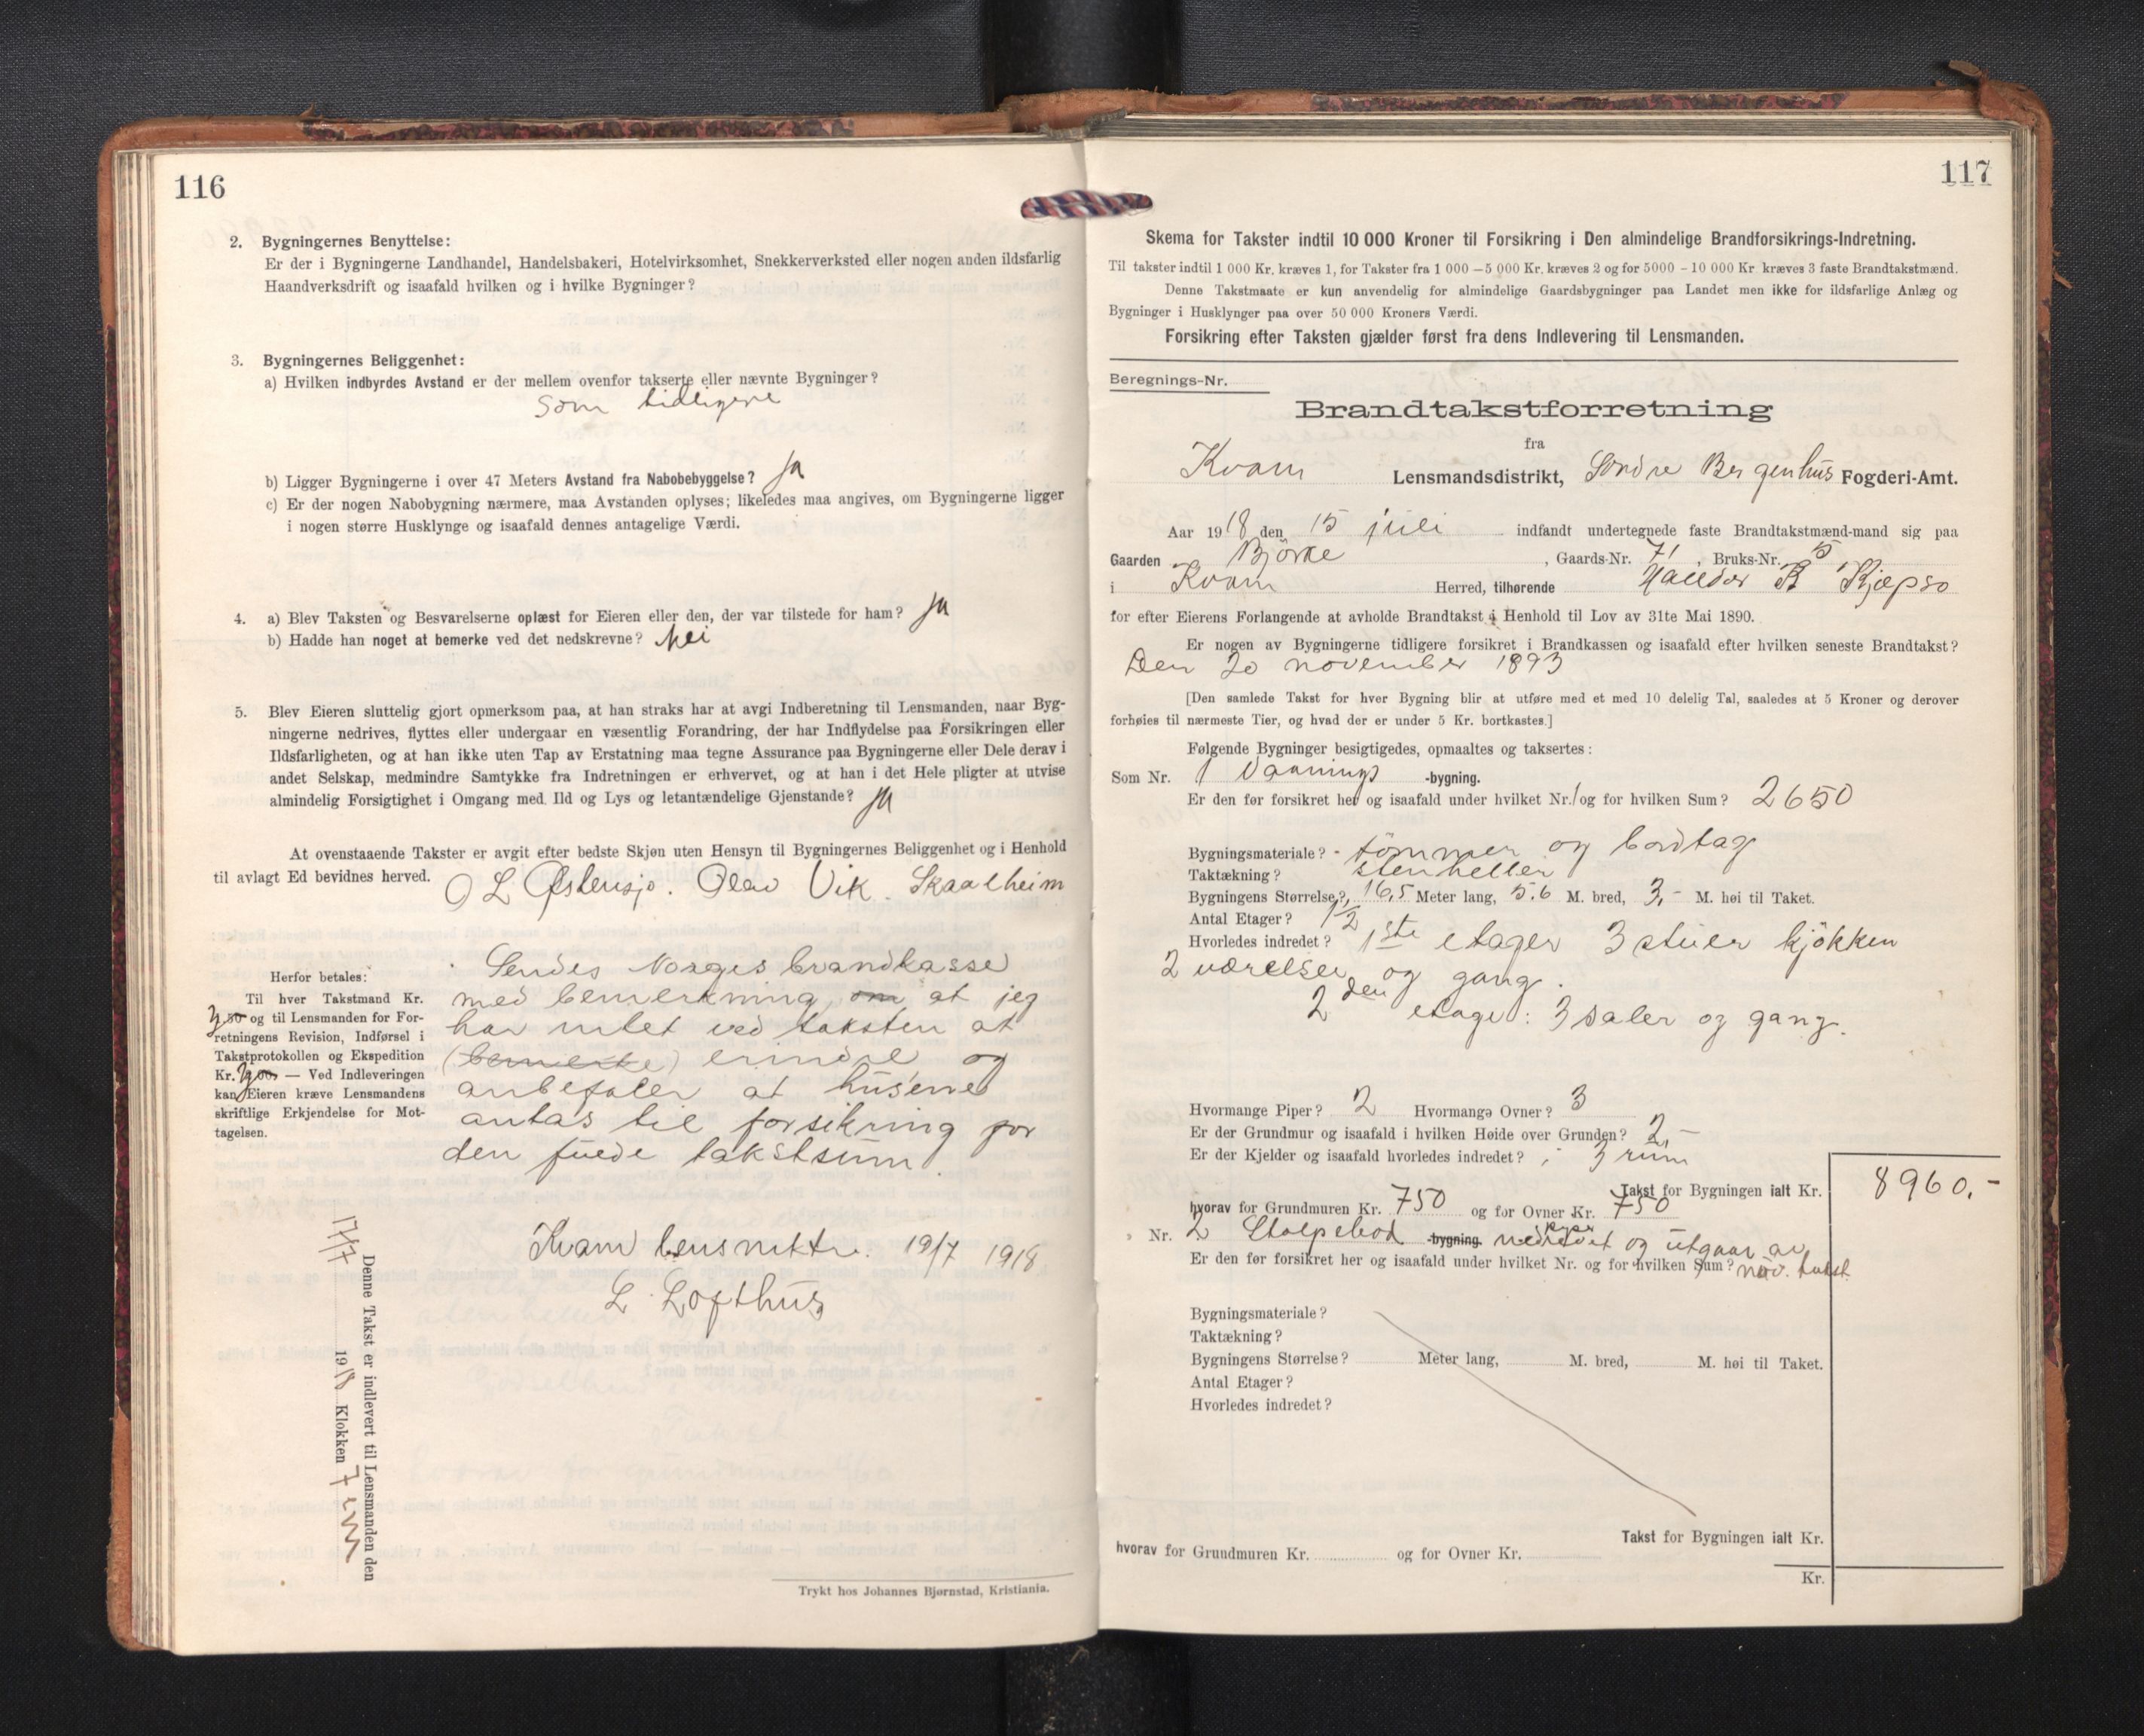 116
2. Bygningernes Benyttelse:
Er der i Bygningerne Landhandel, Handelsbakeri, Hotelvirksomhet, Snekkerverksted eller nogen anden ildsfarlig
Haandverksdrift og isaafald hvilken og i hvilke Bygninger?
3. Bygningernes Beliggenhet:
a) Hvilken indbyrdes Avstand er der mellem ovenfor takserte eller nævnte Bygninger?
som tidligere
b) Ligger Bygningerne i over 47 Meters Avstand fra Nabobebyggelse? ja
c) Er der nogen Nabobygning nærmere, maa Avstanden oplyses; likeledes maa angives, om Bygningerne ligger
i nogen større Husklynge og isaafald dennes antagelige Værdi.
4. a) Blev Taksten og Besvarelserne oplæst for Eieren eller den, der var tilstede for ham? ja
b) Hadde han noget at bemerke ved det nedskrevne? Nei
5. Blev Eieren sluttelig gjort opmerksom paa, at han straks har at avgi Indberetning til Lensmanden, naar Byg-
ningerne nedrives, flyttes eller undergaar en væsentlig Forandring, der har Indflydelse paa Forsikringen eller
Ildsfarligheten, og at han ikke uten Tap av Erstatning maa tegne Assurance paa Bygningerne eller Dele derav i
andet Selskap, medmindre Samtykke fra Indretningen er erhvervet, og at han i det Hele pligter at utvise
almindelig Forsigtighet i Omgang med Ild og Lys og letantændelige Gjenstande? ja
At ovenstaaende Takster er avgit efter bedste Skjøn uten Hensyn til Bygningernes Beliggenhet og i Henhold
til avlagt Ed bevidnes herved. O L Østensjø. Olav Vik. Skaalheim
Herfor betales:
Til hver Takstmand Kr.
og til Lensmanden for For-
retningens Revision, Indførsel i
Takstprotokollen og Ekspedition
Kr. — Ved Indleveringen
kan Eieren kræve Lensmandens
skriftlige Erkjendelse for Mot-
tagelsen.
Sendes Norges brandkasse
med bemerkning om at jeg
har intet ved taksten at
(bemerke) erindre og
anbefaler at husene
antas til forsikring for
den fulde takstsum.
Kvam lensmktr. 19/7 1918
L. Lofthus
Denne Takst er indlevert til Lensmanden den
17/7 1918 Klokken 7 em
Trykt hos Johannes Bjørnstad, Kristiania.
117
Skema for Takster indtil 10 000 Kroner til Forsikring i Den almindelige Brandforsikrings-Indretning.
Til takster indtil 1 000 Kr. kræves 1, for Takster fra 1 000 — 5 000 Kr. kræves 2 og for 5000 - 10 000 Kr kræves 3 faste Brandtakstmænd.
Denne Takstmaate er kun anvendelig for almindelige Gaardsbygninger paa Landet men ikke for ildsfarlige Anlæg og
Bygninger i Husklynger paa over 50 000 Kroners Værdi.
Forsikring efter Taksten gjælder først fra dens Indlevering til Lensmanden.
Beregnings-Nr.
Brandtakstforretning
fra
Kvam Lensmandsdistrikt, Söndre Bergenhus Fogderi-Amt.
Aar 1918 den 15 juli indfandt undertegnede faste Brandtakstmænd-mand sig paa
Gaarden Björke, Gaards-Nr. 71, Bruks-Nr. 5
i Kvam Herred, tilhørende Halldor K Kjepso
for efter Eierens Forlangende at avholde Brandtakst i Henhold til Lov av 31te Mai 1890.
Er nogen av Bygningerne tidligere forsikret i Brandkassen og isaafald efter hvilken seneste Brandtakst?
Den 20 november 1893
[Den samlede Takst for hver Bygning blir at utføre med et med 10 delelig Tal, saaledes at 5 Kroner og derover
forhøies til nærmeste Tier, og hvad der er under 5 Kr. bortkastes.]
Følgende Bygninger besigtigedes, opmaaltes og taksertes:
Som Nr. 1 Vaanings -bygning.
Er den før forsikret her og isaafald under hvilket Nr. 1 og for hvilken Sum? 2650
Bygningsmateriale? tömmer og bordtag
Taktækning? stenheller
Bygningens Størrelse?, 16,5 Meter lang, 5.6 M. bred, 3,- M. høi til Taket.
Antal Etager? 1 1/2
Hvorledes indredet? 1ste etager 3 stuer kjökken
2 værelser og gang.
2den etage: 3 saler og gang.
Hvormange Piper? 2 Hvormange Ovner? 3
Er der Grundmur og isaafald i hvilken Høide over Grunden? 2,-
Er der Kjelder og isaafald hvorledes indredet? i 3 rum
Takst for Bygningen ialt Kr. 8960.-
hvorav for Grundmuren Kr. 750 og for Ovner Kr. 750
Nr. 2 Stolpebod -bygning. og utgaar av
Er den før forsikret her og isaafald under hvilket Nr. og for hvilken Sum? takst
Bygningsmateriale?
Taktækning?
Bygningens Størrelse? Meter lang, M. bred, M. høi til Taket.
Antal Etager?
Hvorledes indredet?
Takst for Bygningen ialt Kr.
hvorav for Grundmuren Kr. og for Ovner Kr.
Kr.